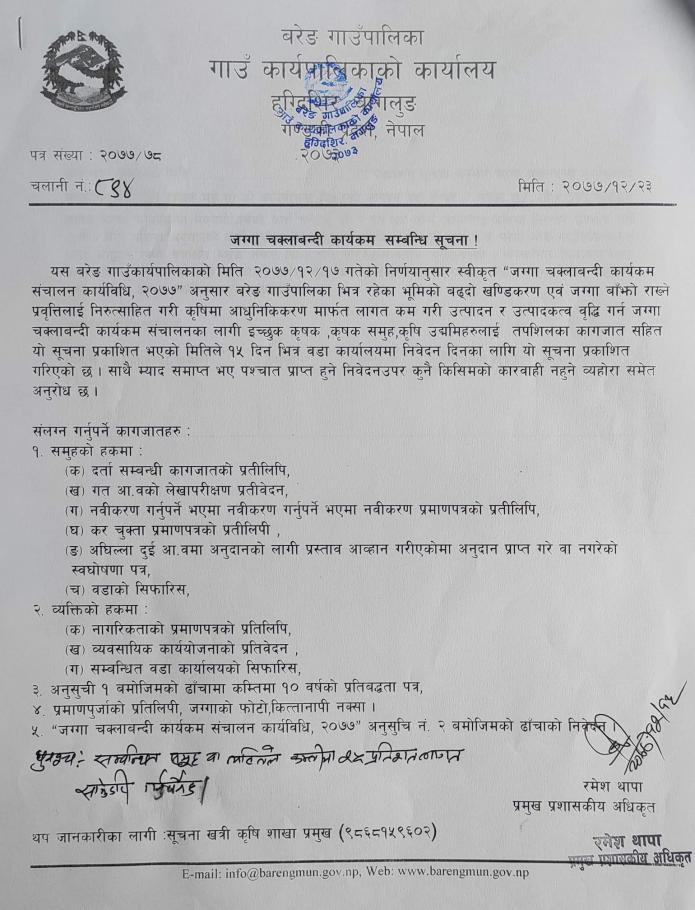 बरेङ गाउँपालिका
गाउँ कार्यपालिकाको कार्यालय
हुग्दिशिर, बागलुङ
गण्डकी प्रदेश, नेपाल
२०७३
बरेङ गाउँपालिका
गाउँ कार्यपालिकाको कार्यालय
हुग्दिशिर, बागलुङ
२०७३
पत्र संख्या : २०७७/७८
चलानी नं.: ८९४
मिति : २०७७/१२/२३
जग्गा चक्लाबन्दी कार्यकम सम्बन्धि सूचना !
यस बरेङ गाउँकार्यपालिकाको मिति २०७७/१२/१७ गतेको निर्णयानुसार स्वीकृत "जग्गा चक्लाबन्दी कार्यकम
संचालन कार्यविधि, २०७७" अनुसार बरेङ गाउँपालिका भित्र रहेका भुमिको बढ्दो खण्डिकरण एवं जग्गा बाँझो राख्ने
प्रवृत्तिलाई निरुत्साहित गरी कृषिमा आधुनिकिकरण मार्फत लागत कम गरी उत्पादन र उत्पादकत्व वृद्धि गर्न जग्गा
चक्लाबन्दी कार्यकम संचालनका लागी इच्छुक कृषक ,कृषक समुह,कृषि उद्यमिहरुलाई तपशिलका कागजात सहित
यो सूचना प्रकाशित भएको मितिले १५ दिन भित्र वडा कार्यालयमा निवेदन दिनका लागि यो सूचना प्रकाशित
गरिएको छ । साथै म्याद समाप्त भए पश्चात प्राप्त हुने निवेदनउपर कुनै किसिमको कारवाही नहुने व्यहोरा समेत
अनुरोध छ ।
संलग्न गर्नुपर्ने कागजातहरु :
१. समुहको हकमा :
(क) दर्ता सम्बन्धी कागजातको प्रतीलिपि,
(ख) गत आ.वको लेखापरीक्षण प्रतीवेदन,
(ग) नवीकरण गर्नुपर्ने भएमा नवीकरण गर्नुपर्ने भएमा नवीकरण प्रमाणपत्रको प्रतीलिपि,
(घ) कर चुक्ता प्रमाणपत्रको प्रतीलिपी ,
(ङ) अघिल्ला दुई आ.वमा अनुदानको लागी प्रस्ताव आव्हान गरीएकोमा अनुदान प्राप्त गरे वा नगरेको
स्वघोषणा पत्र,
(च) वडाको सिफारिस,
२. व्यक्तिको हकमा :
(क) नागरिकताको प्रमाणपत्रको प्रतिलिपि,
(ख) व्यवसायिक कार्ययोजनाको प्रतिवेदन ,
(ग) सम्बन्धित वडा कार्यालयको सिफारिस,
३. अनुसुची १ बमोजिमको ढाँचामा कम्तिमा १० वर्षको प्रतिबद्धता पत्र,
४. प्रमाणपुर्जाको प्रतिलिपी, जग्गाको फोटो,कित्तानापी नक्सा ।
५. "जग्गा चक्लाबन्दी कार्यकम संचालन कार्यविधि, २०७७" अनुसुचि नं. २ बमोजिमको ढाँचाको निवेदन ।
पुनश्च :- सम्बन्धित समुह वा व्यक्तिले कम्तीमा २५ प्रतिशत लागत
साझेदारी गर्नुपर्नेछ ।
रमेश थापा
प्रमुख प्रशासकीय अधिकृत
थप जानकारीका लागी :सूचना खत्री कृषि शाखा प्रमुख (९८६८१५९६०२)
रमेश थापा
प्रमुख प्रशासकीय अधिकृत
E-mail: info@barengmun.gov.np, Web: www.barengmun.gov.np